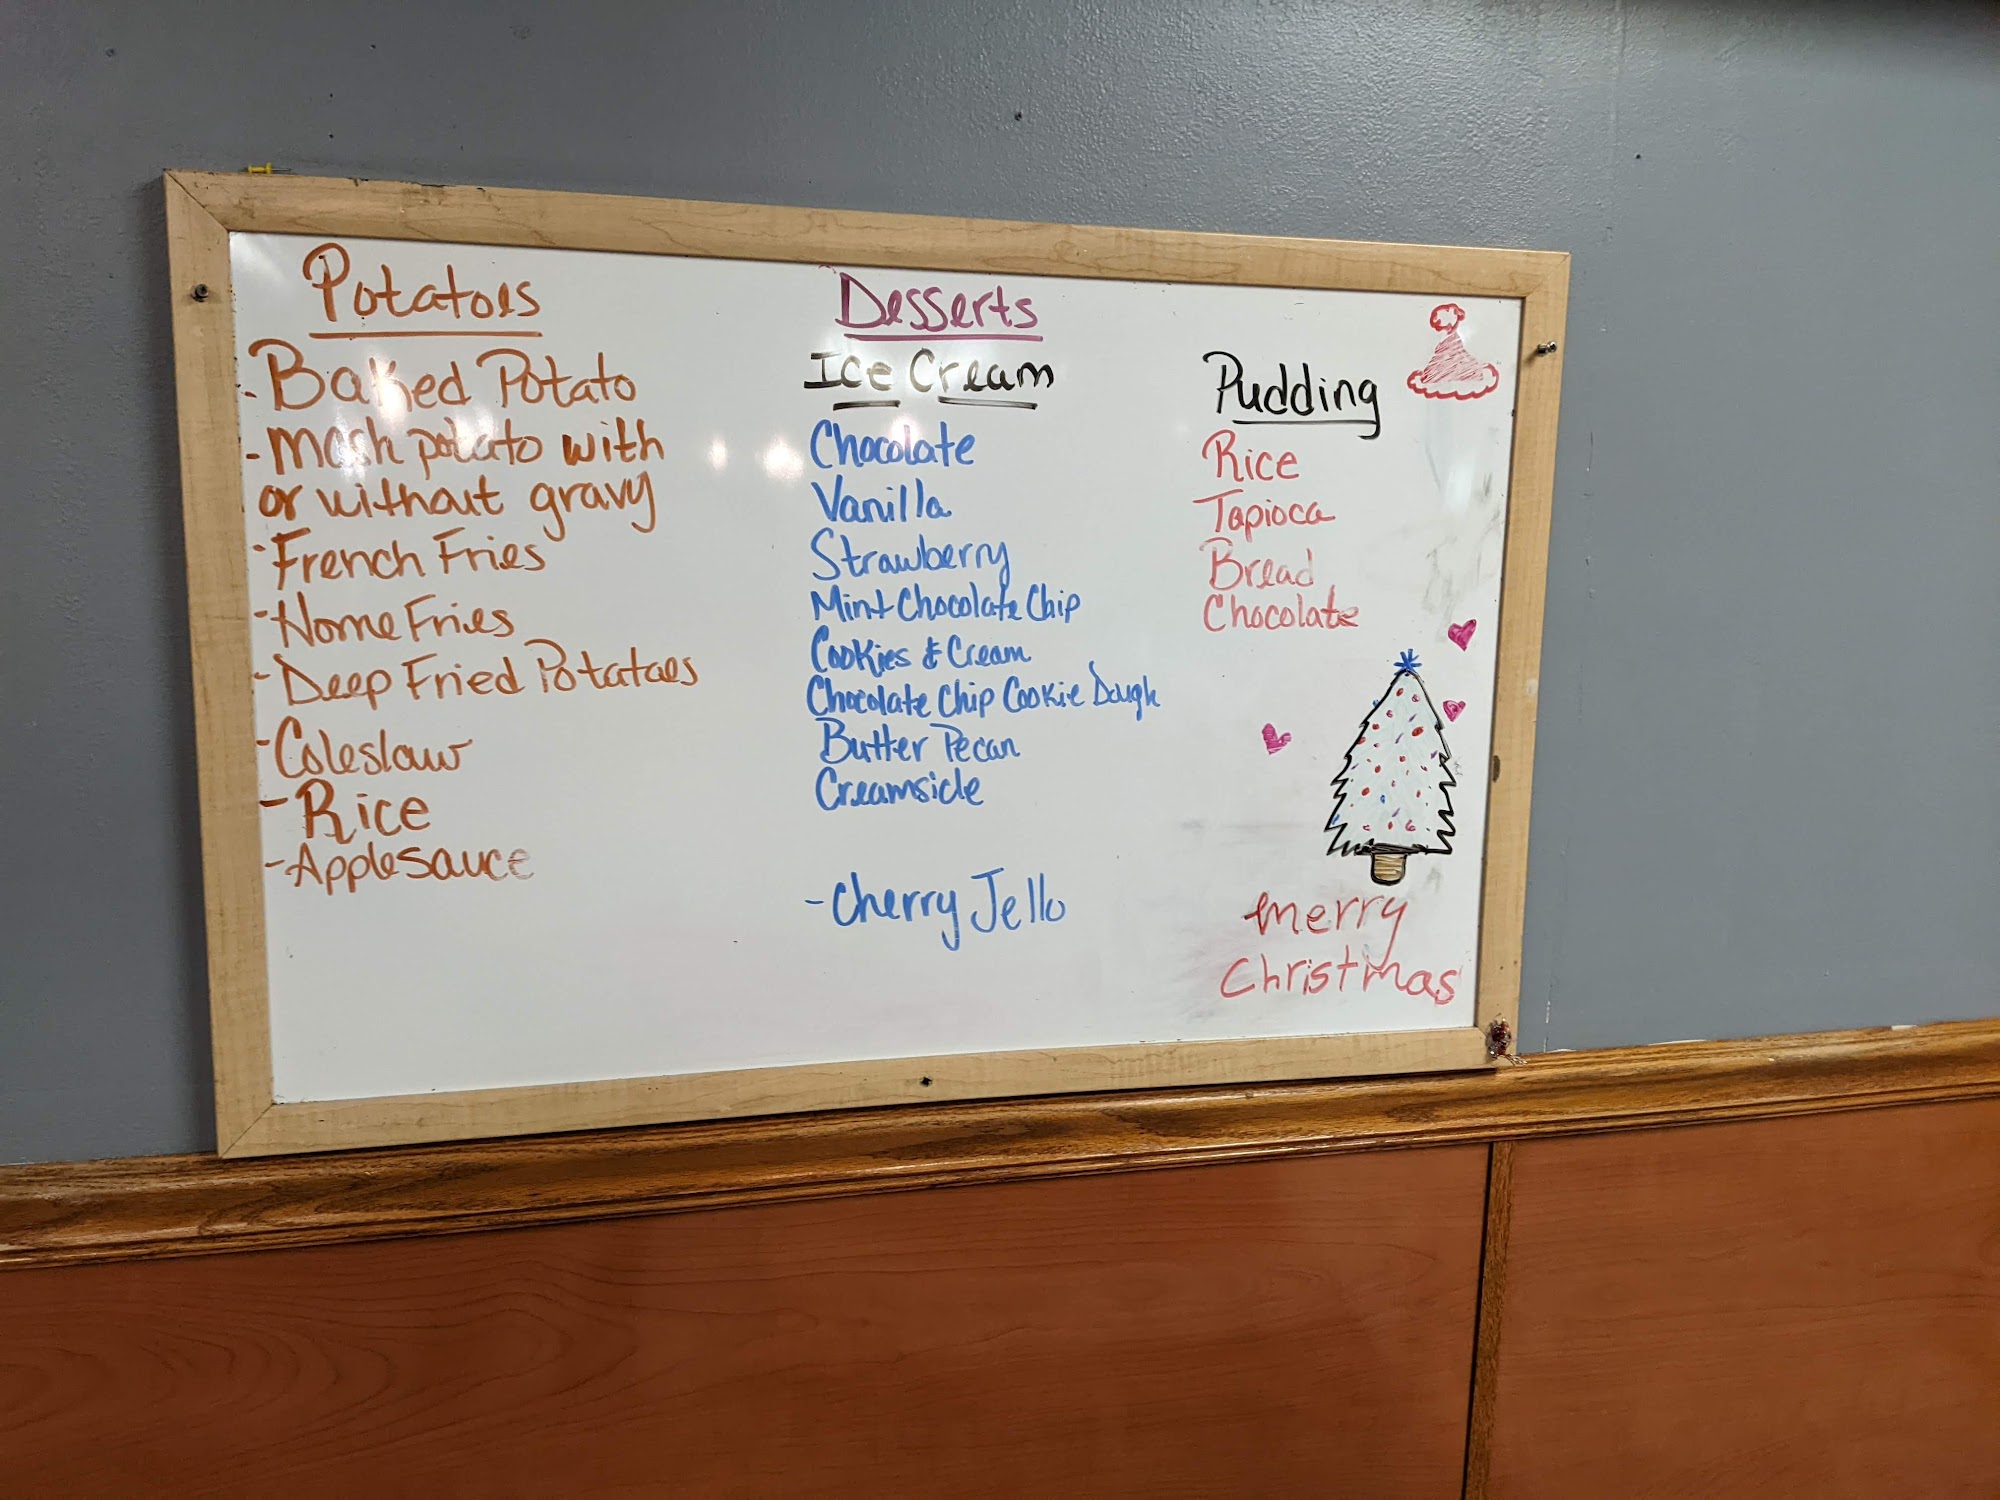 Potatoes
- Baked Potato
- mash potato with
or without gravy
- French Fries
- Home Fries
- Deep Fried Potatoes
- Coleslaw
- Rice
- Applesauce
Desserts
Ice Cream
Chocolate
Vanilla
Strawberry
Mint Chocolate Chip
Cookies & Cream
Chocolate Chip Cookie Dough
Butter Pecan
Creamsicle
- Cherry Jello
Pudding
Rice
Tapioca
Bread
Chocolate
merry
Christmas